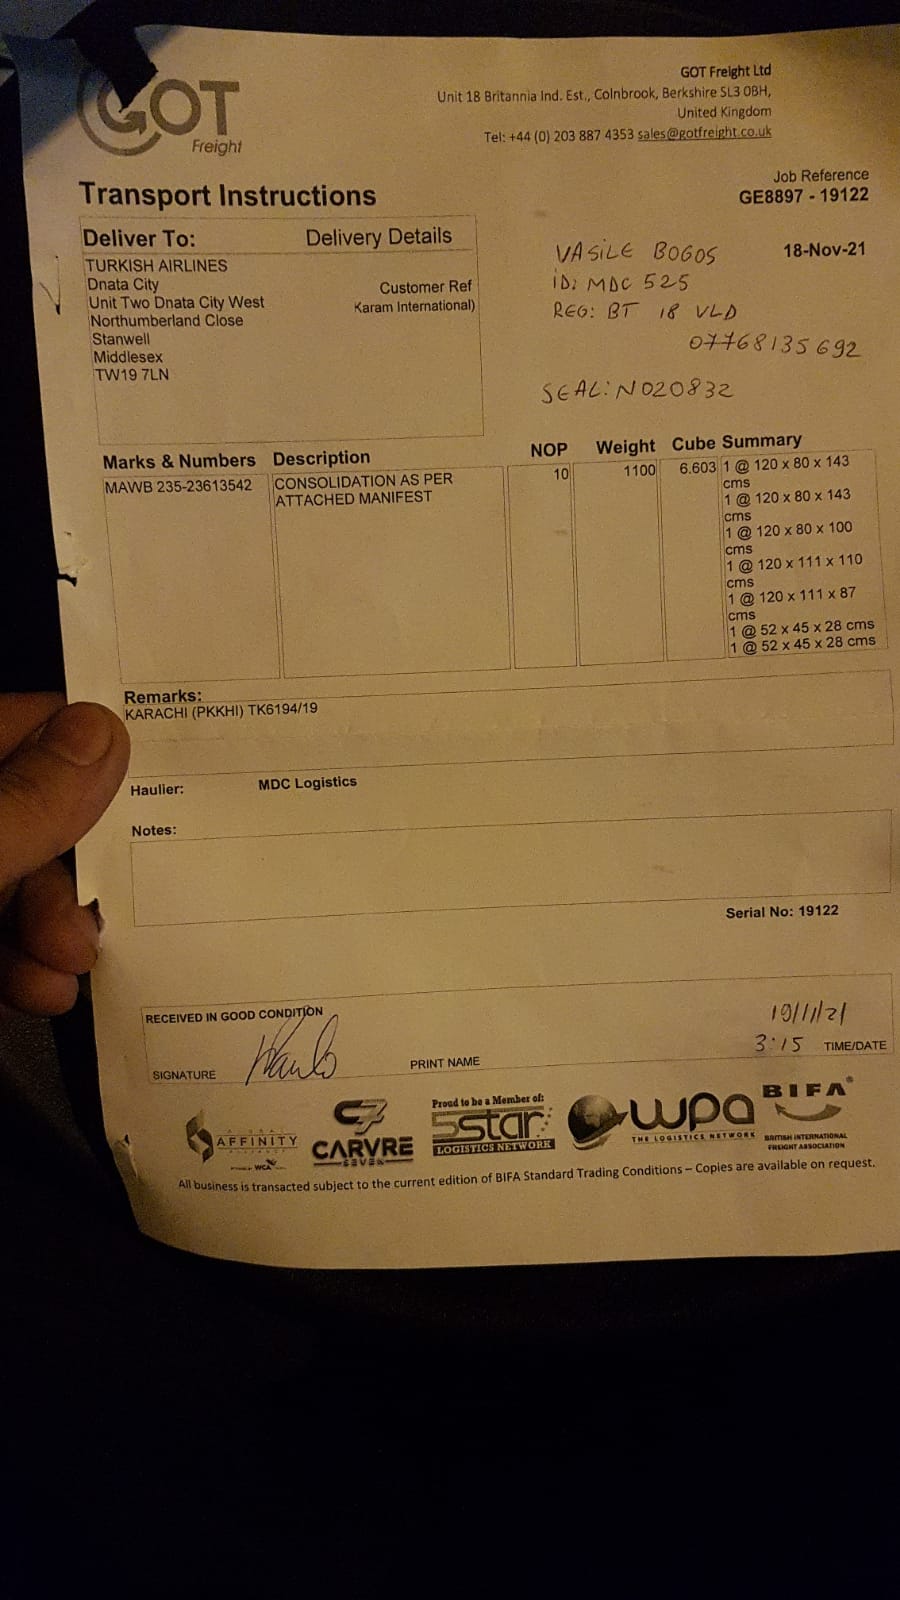 GOT
Freight
GOT Freight Ltd
Unit 18 Britannia Ind. Est., Colnbrook, Berkshire SL3 0BH,
United Kingdom
Tel: +44 (0) 203 887 4353 sales@gotfreight.co.uk
Transport Instructions
Job Reference
GE8897 - 19122
Deliver To:
Delivery Details
TURKISH AIRLINES
Dnata City
Unit Two Dnata City West
Northumberland Close
Stanwell
Middlesex
TW19 7LN
Customer Ref
Karam International)
18-Nov-21
VASILE BOGOS
iD: MDC 525
REG: BT 18 VLD
07768135692
SEAL: N020832
Marks & Numbers Description NOP Weight Cube Summary
MAWB 235-23613542
CONSOLIDATION AS PER
ATTACHED MANIFEST
10
1100
6.603
1 @ 120 x 80 x 143
cms
1 @ 120 x 80 x 143
cms
1 @ 120 x 80 x 100
cms
1 @ 120 x 111 x 110
cms
1 @ 120 x 111 x 87
cms
1 @ 52 x 45 x 28 cms
1 @ 52 x 45 x 28 cms
Remarks:
KARACHI (PKKHI) TK6194/19
Haulier: MDC Logistics
Notes:
Serial No: 19122
RECEIVED IN GOOD CONDITION
19/11/21
3:15 TIME/DATE
SIGNATURE
PRINT NAME
AFFINITY
WCA
CARVRE
SEVEN
Proud to be a Member of:
5star
LOGISTICS NETWORK
wpa
THE LOGISTICS NETWORK
BIFA
BRITISH INTERNATIONAL
FREIGHT ASSOCIATION
All business is transacted subject to the current edition of BIFA Standard Trading Conditions – Copies are available on request.